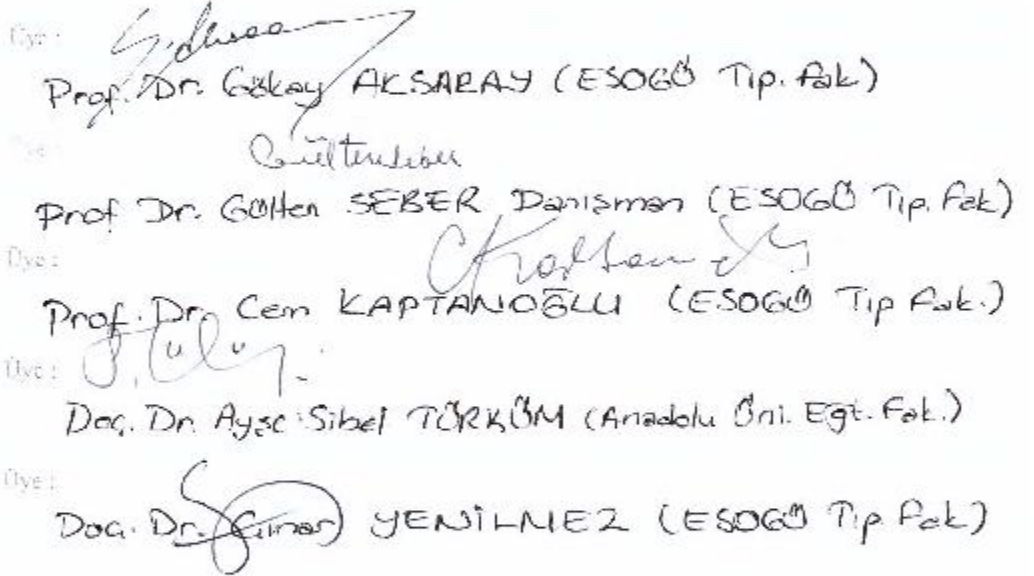 Üye :
Prof. Dr. Gökay AKSARAY (ESOGÜ Tıp. Fak)
Üye :
Gülten Seber
Prof Dr. Gülten SEBER Danışman (ESOGÜ Tıp. Fak)
Üye :
Prof. Dr. Cem KAPTANOĞLU (ESOGÜ Tıp Fak.)
Üye :
Doç. Dr. Ayşe Sibel TÜRKÜM (Anadolu Üni. Eğt. Fak.)
Üye :
Doç. Dr. Çınar YENİLMEZ (ESOGÜ Tıp Fak)